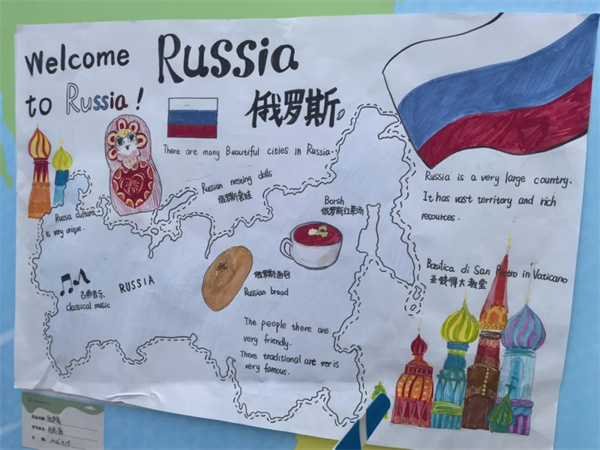 Welcome
to Russia!
Russia
俄罗斯
There are many Beautiful cities in Russia.
Russian nesting dolls
俄罗斯套娃
Russia culture
is very unique.
Borsh
俄罗斯红菜汤
Russia is a very large country.
It has vast territory and rich
resources.
Basilica di San Pietro in Vaticano
圣彼得大教堂
古典音乐
classical music
RUSSIA
俄罗斯面包
Russian bread
The people there are
very friendly.
There traditional are
is
very famous.